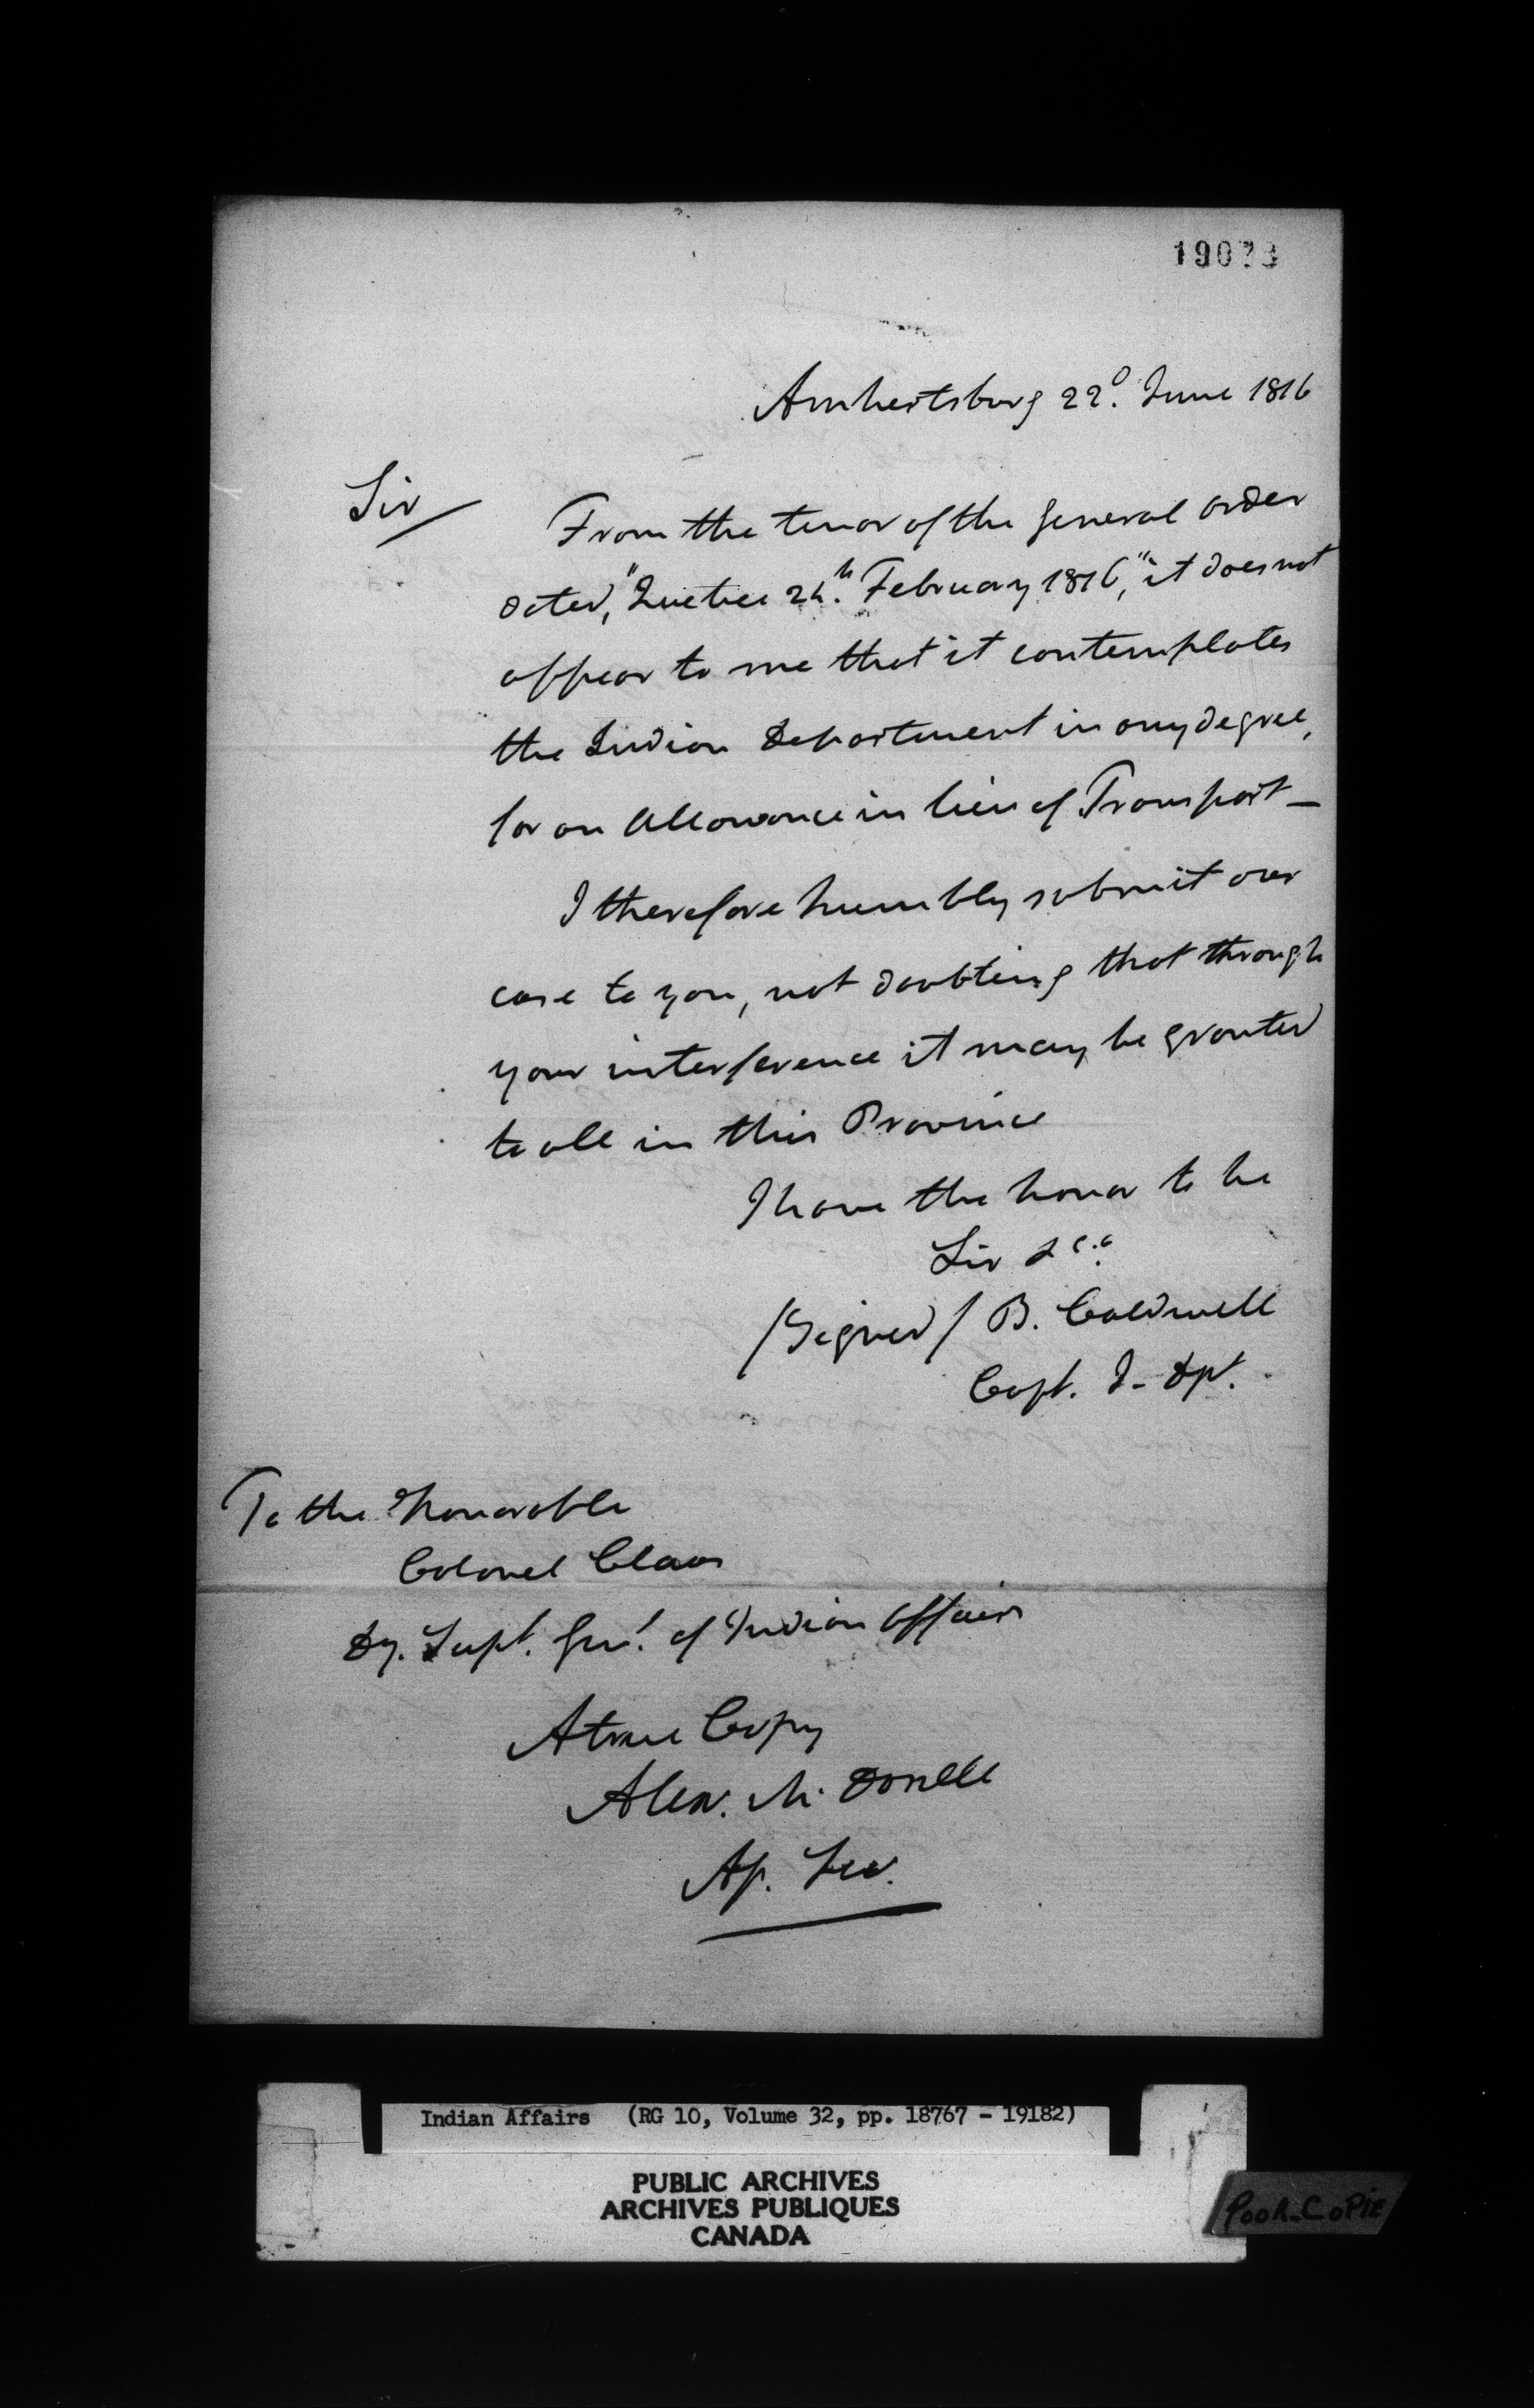 19073
Amhertsburg 22d. June 1816
Sir/
From the tenor of the General order
dated, "Quebec 24th. February 1816," it does not
appear to me that it contemplates
the Indian Department in any degree,
for an Allowance in lieu of Transport –
I therefore humbly submit our
case to you, not doubting that through
your interference it may be granted
to all in this Province
I have the honor to be
Sir &c.c
/Signed/ B. Caldwell
Capt. I- Dpt.
To the Honorable
Colonel Claus
Dy. Supt. Genl. of Indian Affairs
A true Copy
Alex. Mc Donell
Ap. Sec.
Indian Affairs (RG 10, Volume 32, pp. 18767 - 19182)
PUBLIC ARCHIVES
ARCHIVES PUBLIQUES
CANADA
POOR-COPIE